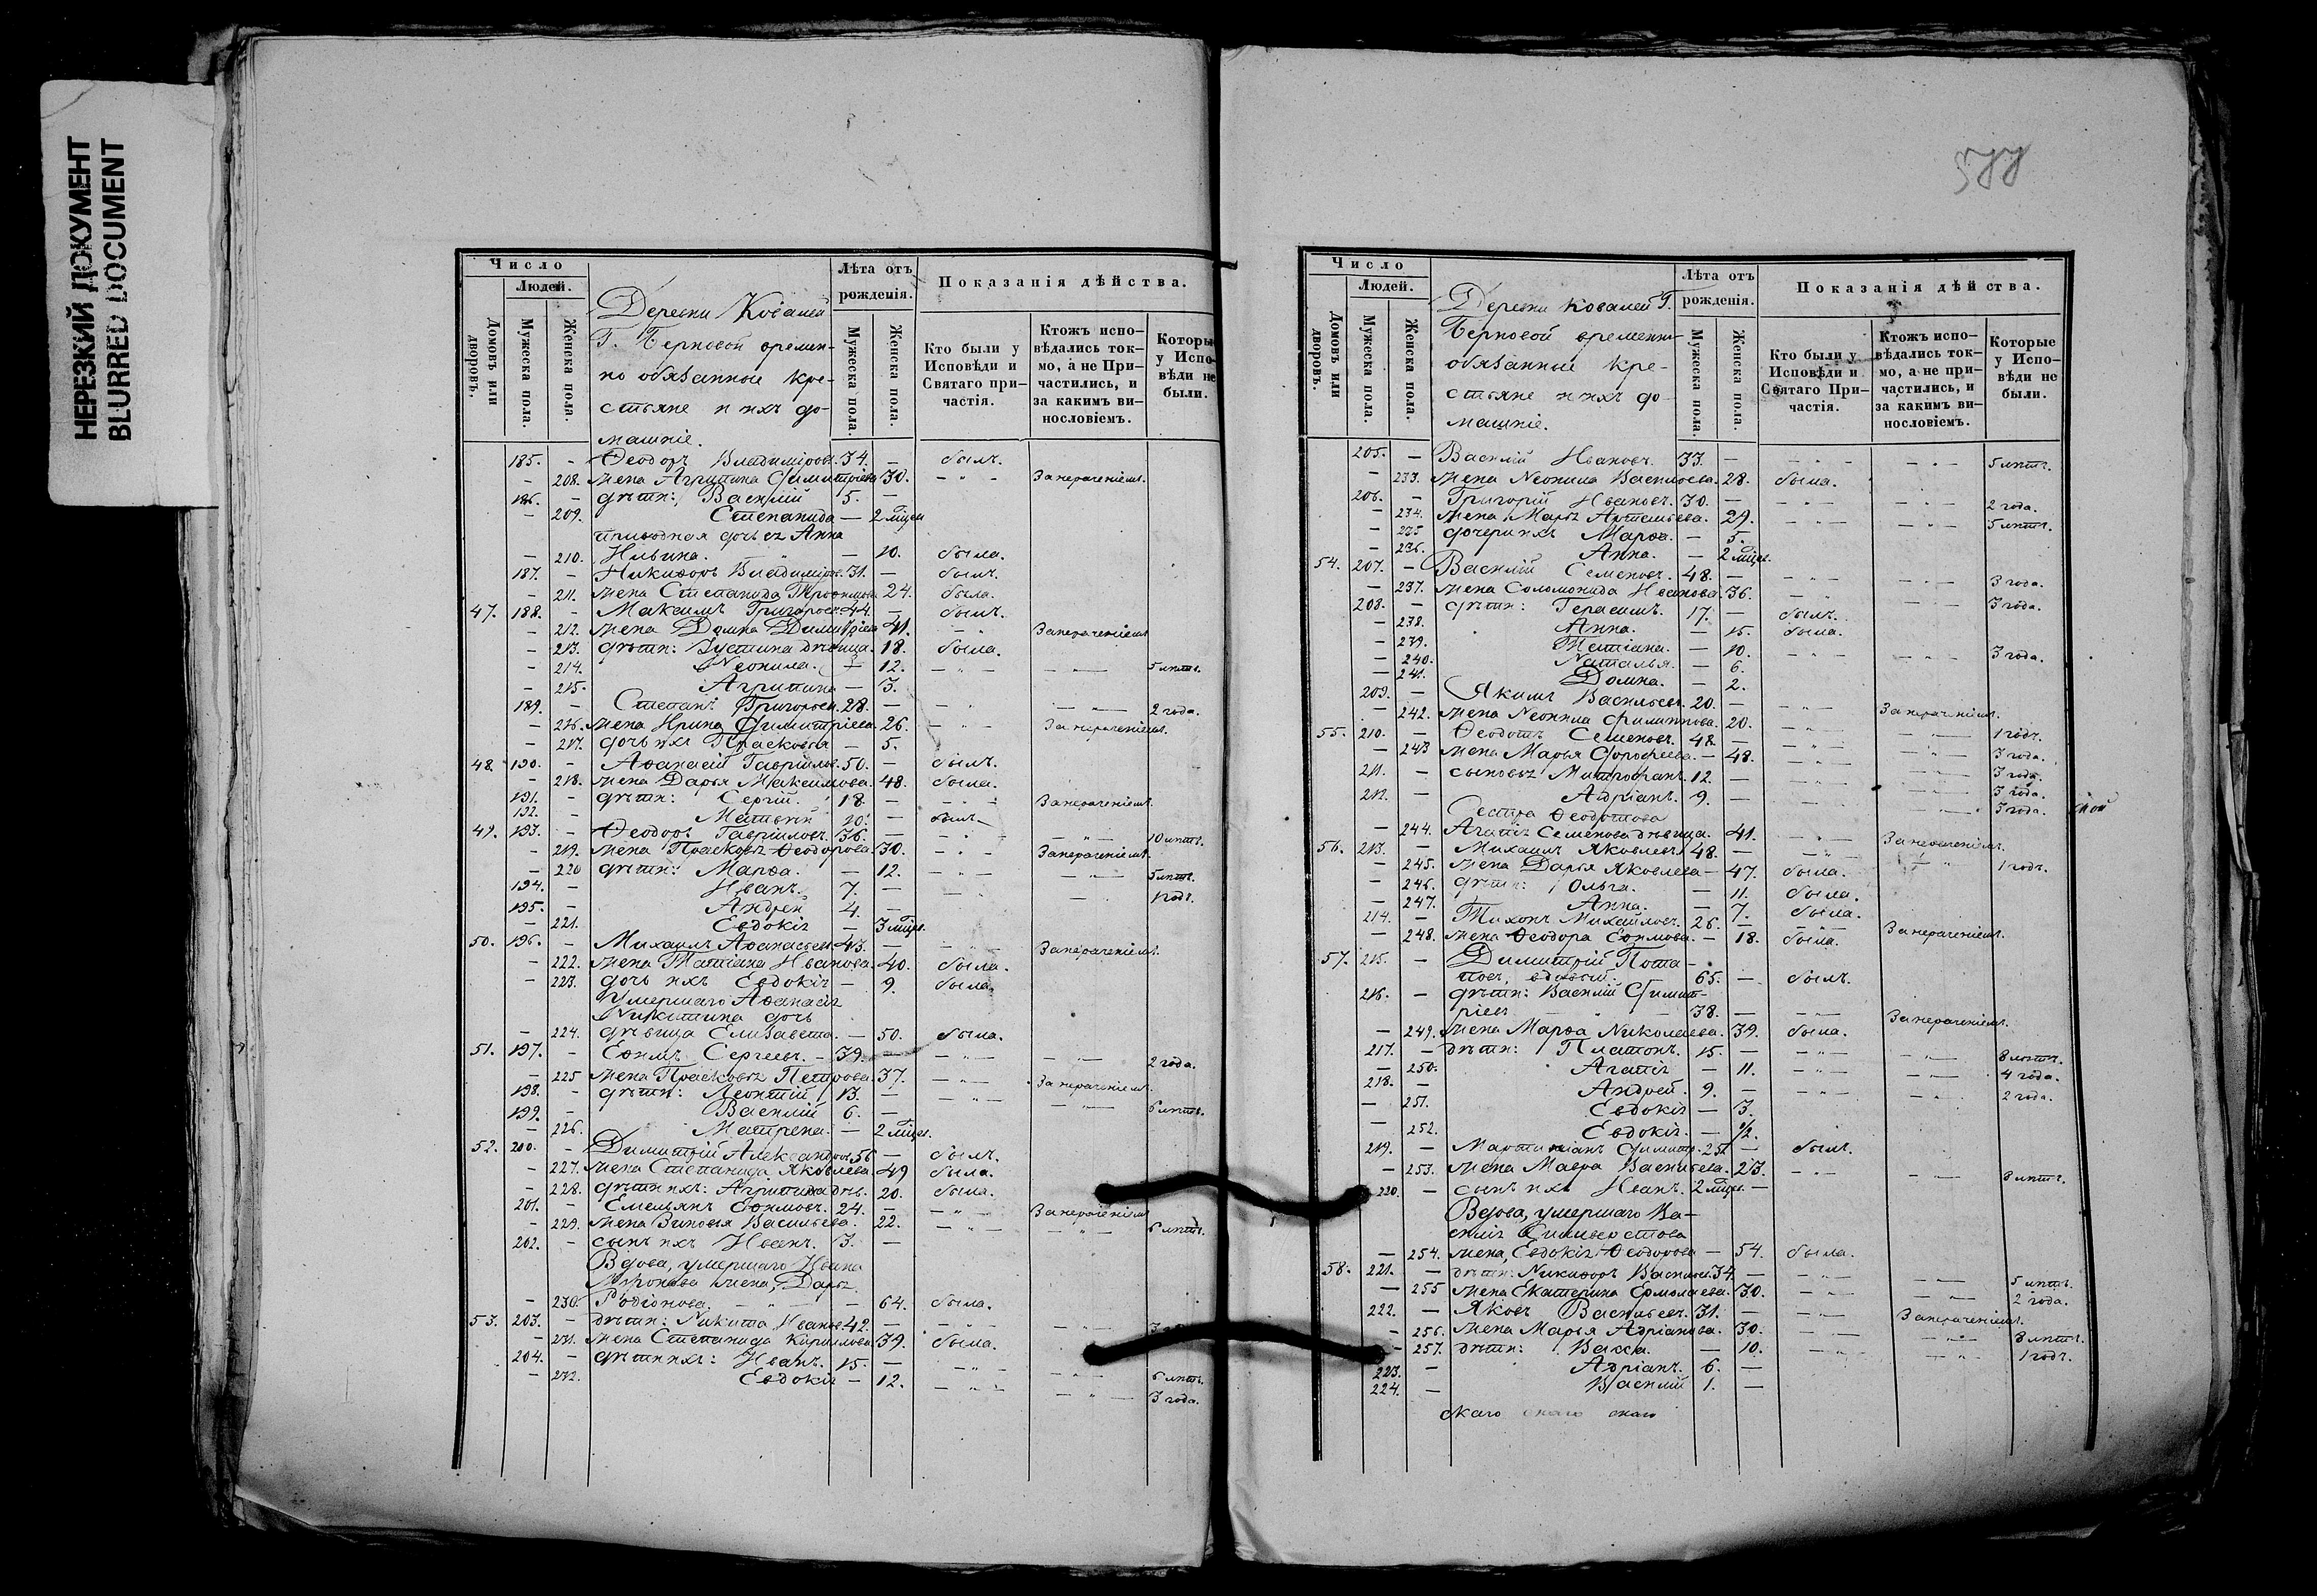 НЕРЕЗКИЙ ДОКУМЕНТ
BLURRED DOCUMENT
Число
Людей.
Домовъ или дворовъ.
Мужеска пола.
Женска пола.
Деревни Ковалей
Г. Берновой времен-
но обязанные кре-
стьяне и ихъ до-
машніе.
Лѣта отъ рожденія.
Мужеска пола.
Женска пола.
Показанія дѣйства.
Кто были у Исповѣди и Святаго при-частія.
Ктожъ испо-вѣдались ток-мо, а не При-частились, и за какимъ ви-нословіемъ.
Которы у Испо-вѣди не были.
185. - Ѳеодоръ Владиміровъ. 34. - былъ.
- 208. жена Агрипина Димитріева 30. - " - За нераченіемъ.
186. - дѣти: Василій 5. -
- 209. Степанида - 2 мѣсц.
приводная дочь ея Анна
- 210. Ильина. - " - 10. была.
187. - Никифоръ Владиміров. 31. - былъ.
- 211. жена Степанида Трофимова 24. была.
47. 188. - Максимъ Григорьев. 44. - былъ.
- 212. жена Домна Димитріева 41. - " За нераченіемъ
- 213. дѣти: Іустина дѣвица. 18. была.
- 214. Неонила. - 12. - " - - " - 5 лѣтъ.
- 215. Агрипина - 3.
189. - Степанъ Григорьев. 28. - - " - - " - 2 года.
- 216. жена Ирина Димитріева. 26. - " - За нераченіемъ.
- 217. дочь ихъ Прасковья - 5.
48. 190. - Аѳанасій Гавріилов. 50. - былъ.
- 218. жена Дарья Максимова. 48. была.
191. - дѣти: Сергій. 18. - - " - За нераченіемъ.
192. - Матвѣй 10. - былъ
49. 193. - Ѳеодоръ Гавріиловъ. 36. - - " - - " - 10 лѣтъ.
- 219. жена Прасковья Ѳеодорова. 30. - " - За нераченіемъ.
- 220 дѣти: Марѳа. - 12. - " - - " - 5 лѣтъ.
194. - Иванъ. 7. - - " - - " - 1 годъ.
195. - Андрей 4. -
- 221. Евдокія - 3 мѣсц.
50. 196. - Михаилъ Аѳанасьев. 43. - - " - За нераченіемъ.
- 222. жена Татіана Иванова. 40. была.
- 223. дочь ихъ Евдокія - 9. была.
Умершаго Аѳанасія
Никитина дочь
- 224. дѣвица Елизавета. - 50. была.
51. 197. - Ефимъ Сергеевъ. - 39. - - " - - " - 2 года.
- 225 жена Прасковья Петрова. 37. - " - За нераченіемъ.
198. - дѣти: Леонтій 13. - - " - - " - 6 лѣтъ.
199. - Василій 6. -
- 226. Матрена. - 2 мѣсц.
52. 200. - Димитрій Александров. 56 - былъ.
- 227. жена Степанида Яковлева. 49 была.
- 228. дѣти ихъ: Агрипина дѣв. 20. была.
201. - Емельянъ Ефимовъ. 24. - - " - За нераченіемъ
- 229. жена Зиновія Васильева. 22. - " - - " - 6 лѣтъ.
202. - сынъ ихъ Иванъ. 3. -
Вдова, умершаго Ивана
жена, Дарья
- 230. Родіонова. - " - 64. была.
53. 203. - дѣти: Никита Иванов. 42. - - " - - " -
- 231. жена Степанида Кирилова 39. была.
204. - дѣти ихъ: Иванъ. 15. - - " - - " - 6 лѣтъ.
- 232. Евдокія - 12. - " - - " - 3 года.
577
Число
Людей.
Домовъ или дворовъ.
Мужеска пола.
Женска пола.
Деревни Ковалей Г.
Берновой временно-
обязанные кре-
стьяне и ихъ до-
машніе.
Лѣта отъ рожденія.
Мужеска пола.
Женска пола.
Показанія дѣйства.
Кто были у Исповѣди и Святаго При-частія.
Ктожъ испо-вѣдались ток-мо, а не при-частились, и за какимъ ви-нословіемъ.
Которые у Испо-вѣди не были.
205. - Василій Ивановъ. 33. - - " - - " - 5 лѣтъ.
- 233. жена Неонила Васильева. 28. была.
206. - Григорій Ивановъ. 30. - - " - - " - 2 года.
- 234. жена Марья Артемьева. 29. - " - - " - 5 лѣтъ.
- 235 дочери ихъ Марѳа. - 5.
- 236. Анна. - 2 мѣсц.
54. 207. - Василій Семеновъ. 48. - - " - - " - 3 года.
- 237. жена Соломонида Иванова. 36. - " - - " - 3 года.
208. - дѣти: Герасимъ. 17. - былъ.
- 238. Анна. - 15. была.
- 239. Татіана. - 10. - " - - " - 3 года.
- 240. Наталья. - 6.
- 241. Домна. - 2.
209. - Якимъ Васильевъ. 20. - - " - За нераченіемъ.
- 242. жена Неонила Филиппова. 20. - " - - " - 1 годъ.
55. 210. - Ѳеодотъ Семеновъ. 48. - - " - - " - 3 года.
- 243 жена Марья Дорофеева. - 48. - " - - " - 3 года.
211. - сыновья Митрофанъ. 12. - - " - - " - 3 года.
212. - Адріанъ. 9. - - " - - " - 3 года.
Сестра Ѳеодотова
- 244. Агапія Семенова дѣвица. 41. - " - За нераченіемъ.
56. 213. - Михаилъ Яковлевъ. 48. - - " - - " - 1 годъ.
- 245. жена Дарья Яковлева - 47. была.
- 246. дѣти: Ольга. - 11. была.
- 247. Анна. - 7. была.
214. - Тихонъ Михайловъ. 26. - - " - За нераченіемъ.
- 248. жена Ѳеодора Ефимова. - 18. была.
57. 215. - Димитрій Пота-
повъ, вдовый. 65. - былъ.
216. - дѣти: Василій Димит-
ріевъ - " - 38. - - " - За нераченіемъ.
- 249. жена Марѳа Николаева. 39. была.
217. - дѣти: Платонъ. 15. - - " - - " - 8 лѣтъ.
- 250. Агапія - 11. - " - - " - 4 года.
218. - Андрей. 9. - - " - - " - 2 года.
- 251. Евдокія - 3.
- 252. Евдокія. - 1/2.
219. - Мартиніанъ Димитр. 25. - былъ.
- 253. жена Мавра Васильева. 23. - " - - " - 8 лѣтъ.
220. - сынъ ихъ Иванъ. 2 мѣсц. -
Вдова, умершаго Ва-
силія Сильверстова
- 254. жена, Евдокія Ѳеодорова - 54. была.
58. 221. - дѣти: Никифоръ Васильев. 34. - - " - - " - 5 лѣтъ.
- 255 жена Екатерина Ермолаева. 30. - " - - " - 2 года.
222. - Яковъ Васильевъ. 31. - - " - За нераченіемъ.
- 256. жена Марья Адріанова. 30. - " - - " - 8 лѣтъ.
- 257. дѣти: Васса. - 10. - " - - " - 1 годъ.
223. - Адріанъ. 6. -
224. - Василій 1. -
скаго скаго скаго